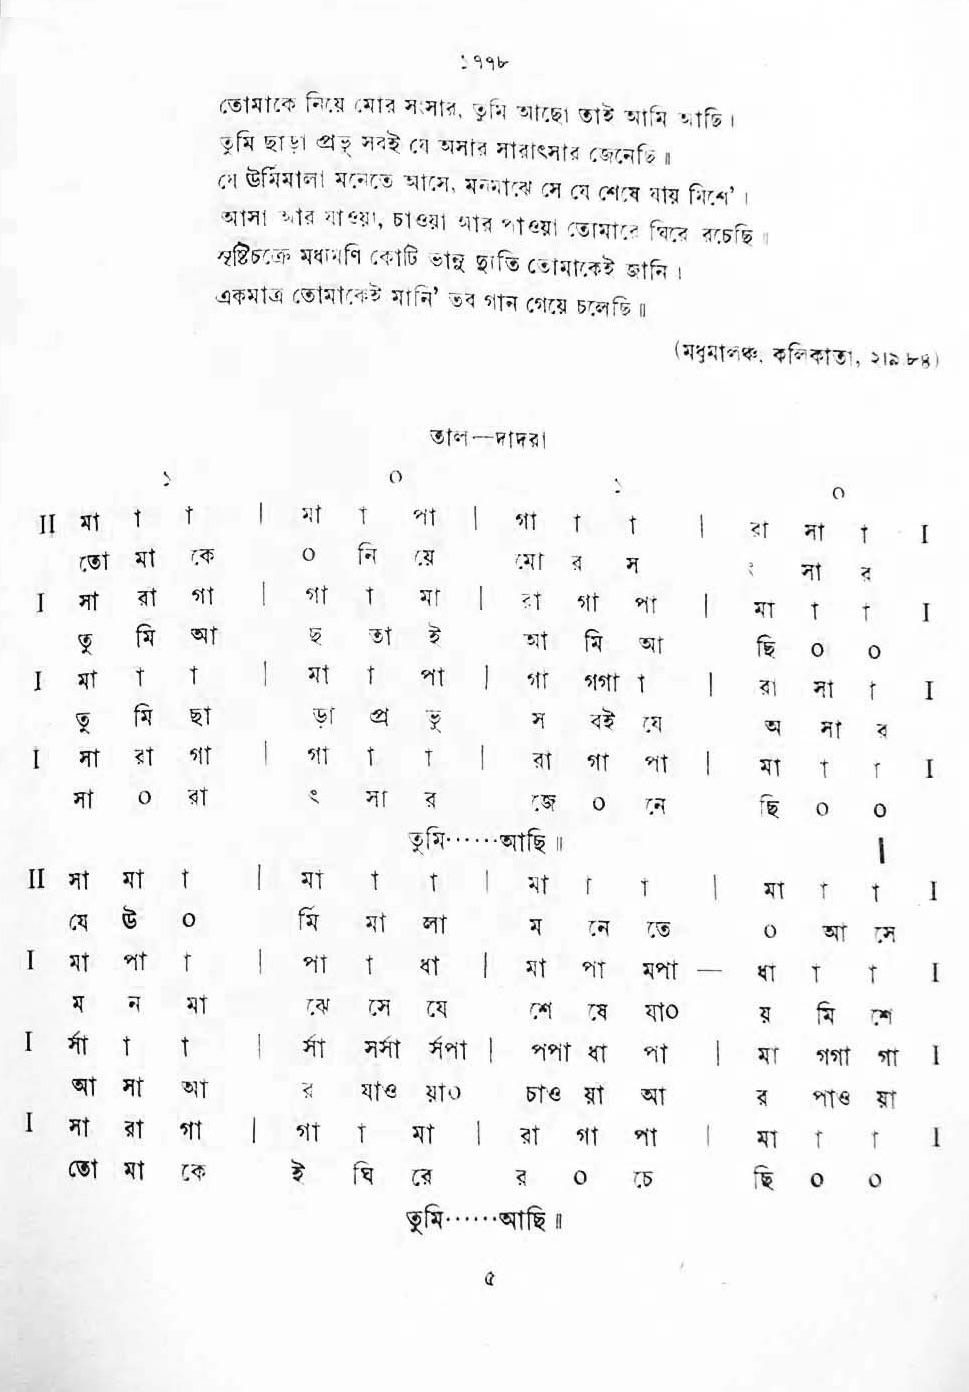 ১৭৭৮
তোমাকে নিয়ে মোর সংসার, তুমি আছো তাই আমি আছি ।
তুমি ছাড়া প্রভু সবই যে অসার সারাৎসার জেনেছি ॥
যে ঊর্মিমালা মনেতে আসে, মনমাঝে সে যে শেষে যায় মিশে’ ।
আসা আর যাওয়া, চাওয়া আর পাওয়া তোমারে ঘিরে রচেছি ॥
সৃষ্টিচক্রে মধ্যমণি কোটি ভানু দ্যুতি তোমাকেই জানি ।
একমাত্র তোমাকেই মানি’ তব গান গেয়ে চলেছি ॥
(মধুমালঞ্চ, কলিকাতা, ২।৯.৮৪)
তাল—দাদরা
১ ০ ১ ০
II মা া া | মা া পা | গা া া | রা সা া I
তো মা কে ০ নি য়ে মো র স ং সা র
I সা রা গা | গা া মা | রা গা পা | মা া া I
তু মি আ ছ তা ই আ মি আ ছি ০ ০
I মা া া | মা া পা | গা গগা া | রা সা া I
তু মি ছা ড়া প্র ভু স বই যে অ সা র
I সা রা গা | গা া া | রা গা পা | মা া া I
সা ০ রা ৎ সা র জে ০ নে ছি ০ ০
তুমি······আছি ॥
II সা মা া | মা া া | মা া া | মা া া I
যে ঊ ০ র্মি মা লা ম নে তে ০ আ সে
I মা পা া | পা া ধা | মা পা মপা — ধা া া I
ম ন মা ঝে সে যে শে ষে যা০ য় মি শে
I র্সা া া | র্সা সর্সা র্সপা | পপা ধা পা | মা গগা গা I
আ সা আ র যাও য়া০ চাও য়া আ র পাও য়া
I সা রা গা | গা া মা | রা গা পা | মা া া I
তো মা কে ই ঘি রে র ০ চে ছি ০ ০
তুমি······আছি ॥
৫